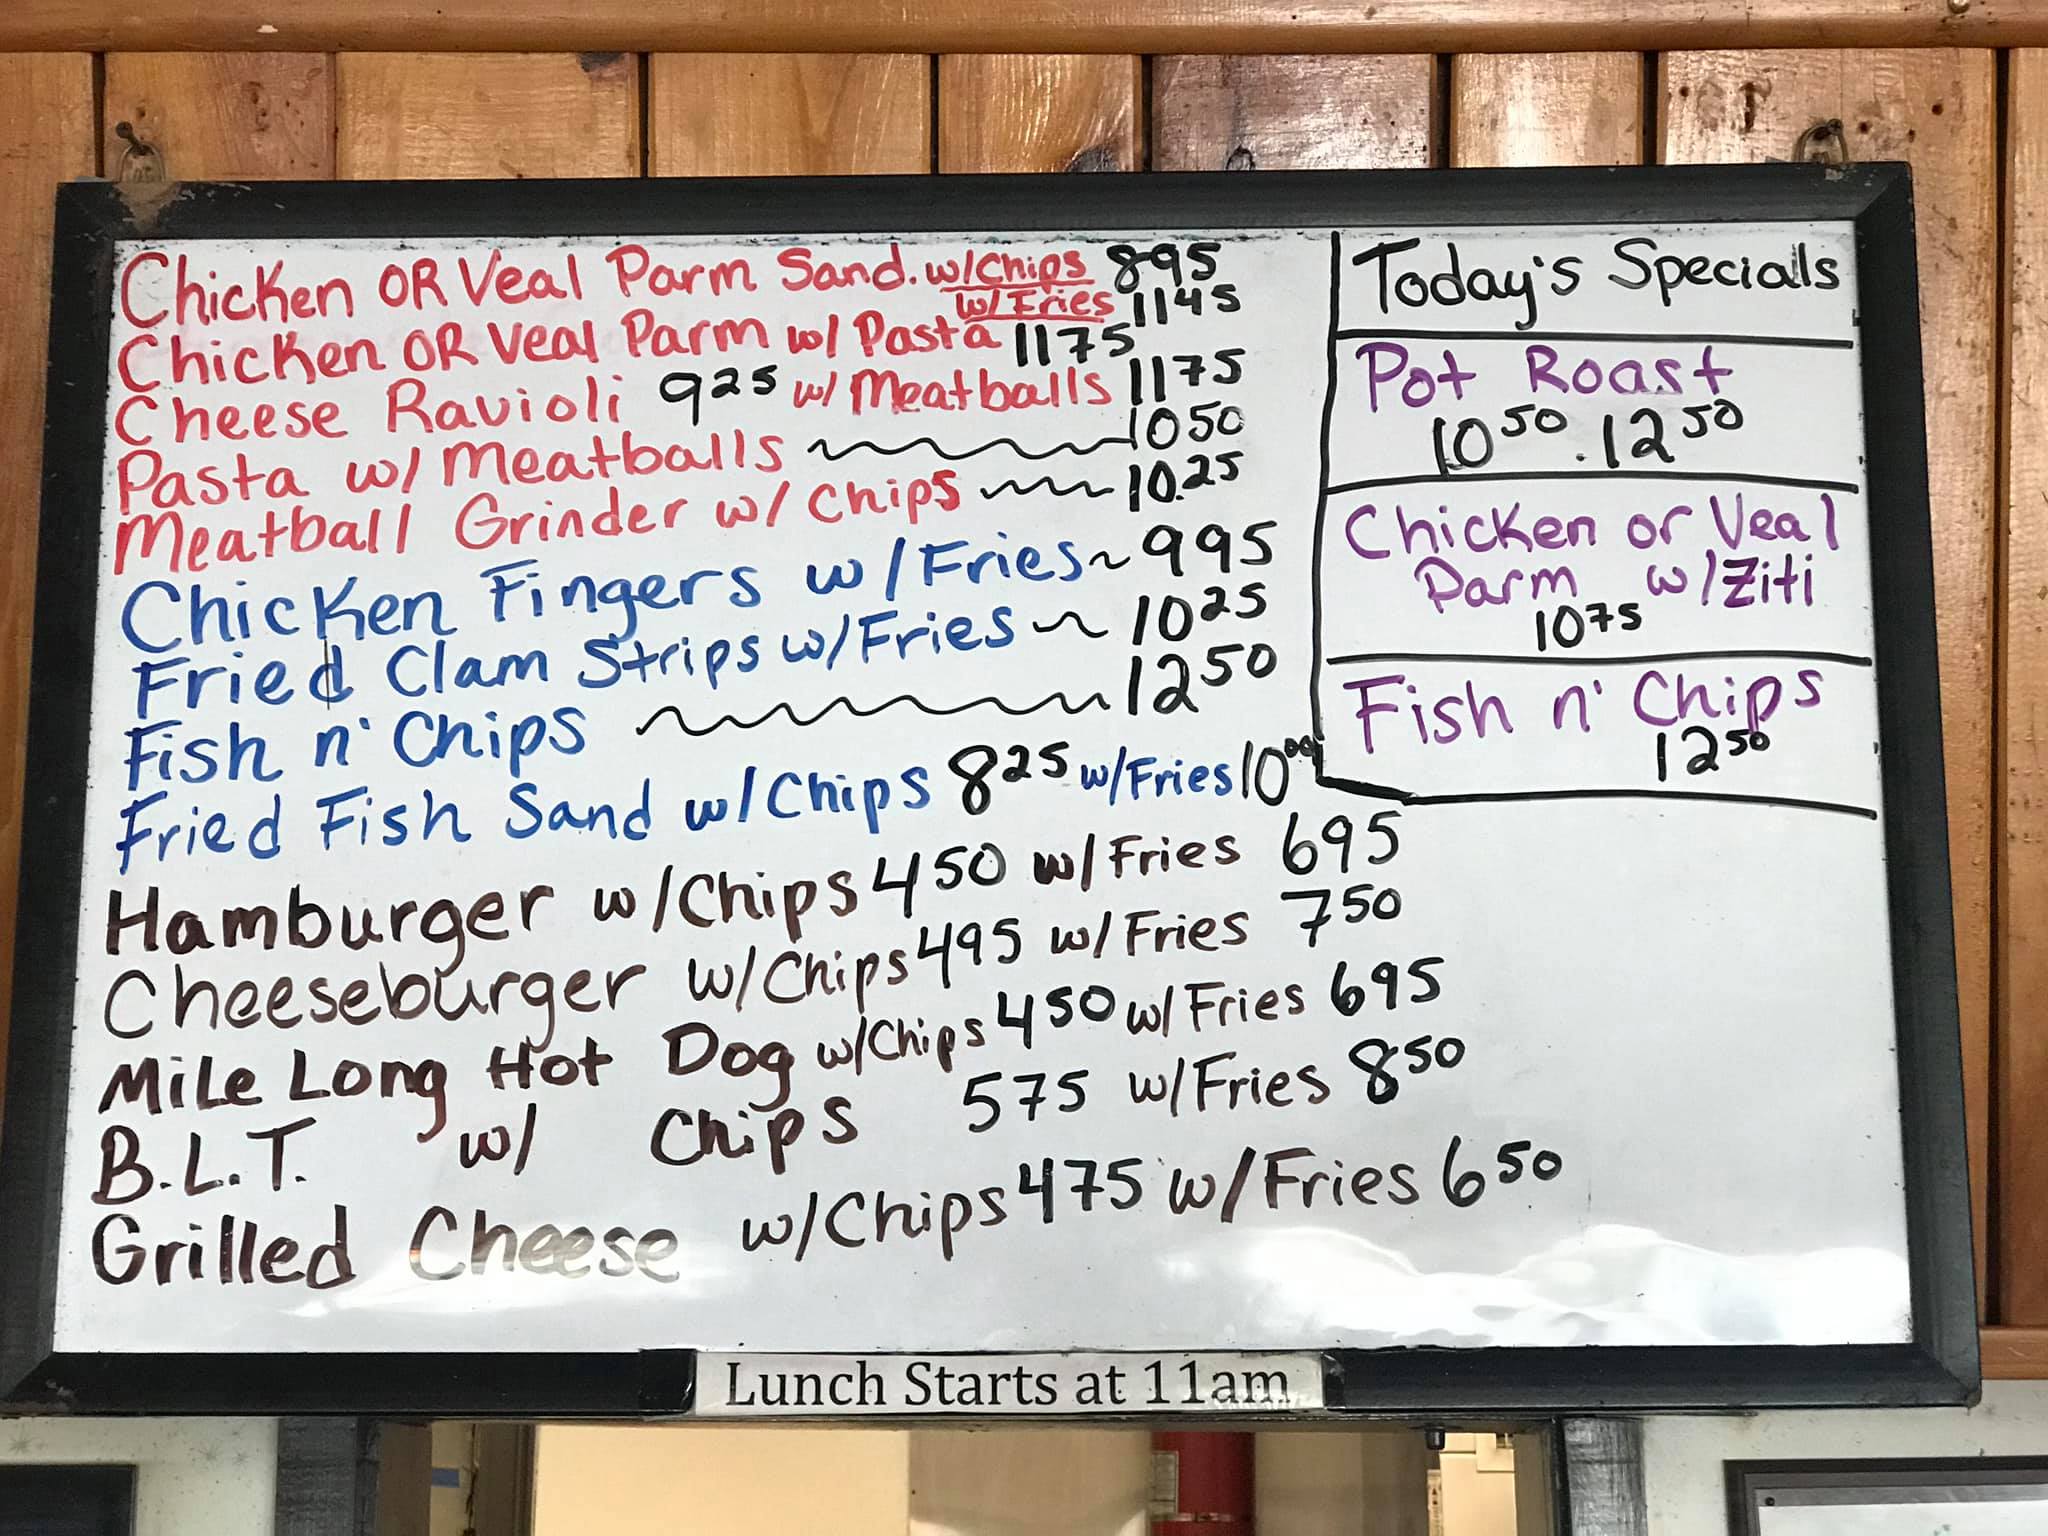 Chicken OR Veal Parm Sand. w/Chips 895
w/Fries 1145
Chicken OR Veal Parm w/ Pasta 1175
Cheese Ravioli 925 w/ Meatballs 1175
Pasta w/ Meatballs 1050
Meatball Grinder w/ Chips 10.25
Chicken Fingers w/Fries 995
Fried Clam Strips w/Fries 1025
Fish n' Chips 1250
Fried Fish Sand w/Chips 825 w/Fries 1000
Hamburger w/Chips 450 w/Fries 695
Cheeseburger w/Chips 495 w/Fries 750
Mile Long Hot Dog w/Chips 450 w/Fries 695
B.L.T. w/ Chips 575 w/Fries 850
Grilled Cheese w/Chips 475 w/Fries 650
Today's Specials
Pot Roast
1050 . 1250
Chicken or Veal
Parm w/Ziti
1075
Fish n' Chips
1250
Lunch Starts at 11am